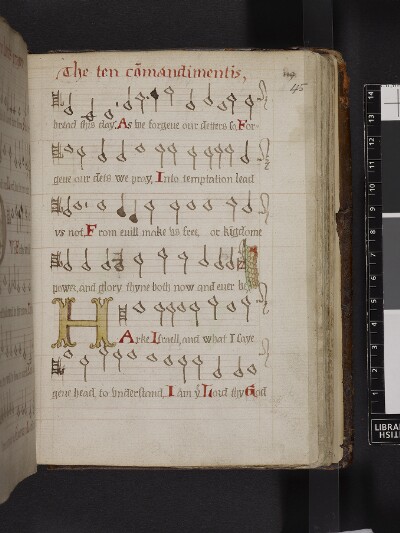 The ten cõmandimentis,
45
bread this day, As we forgeue our detters so, For-
geue our dets we pray, Into temptation lead
vs not, From euill make vs free, or kigdome
powr, and glory thyne both now and euer be
HArke Israell, and what I saye
geue head to vnderstand, I am ẏ Lord thy God
14
13
12
11
10
9
8
7
6
5
4
3
2
1
LIBRAR
HSITI